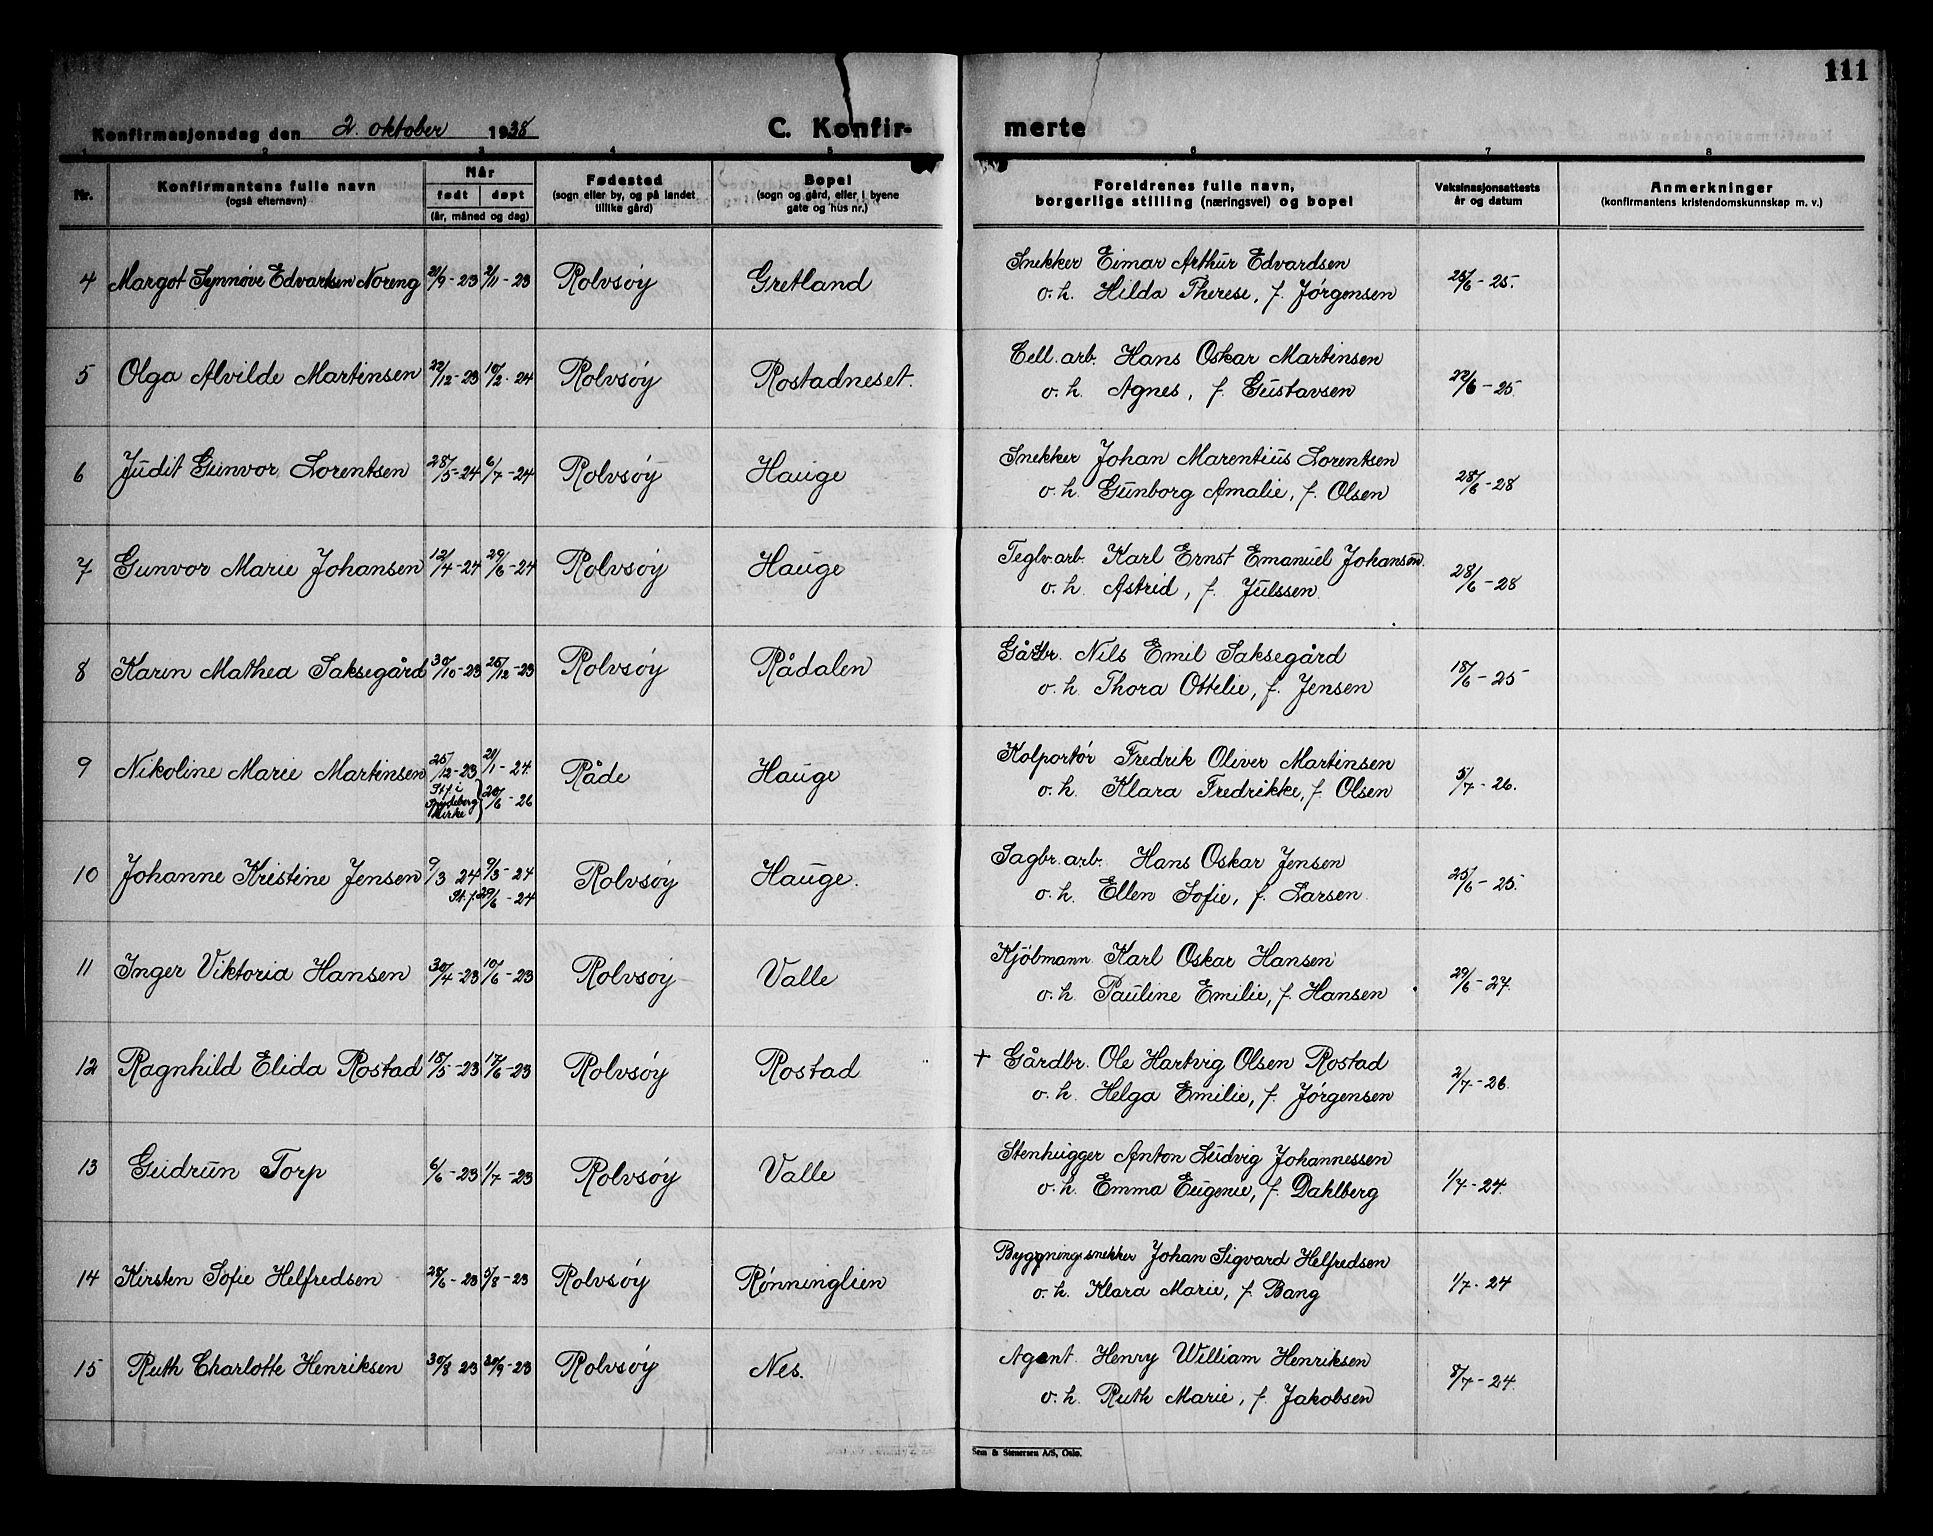 111
Konfirmasjonsdag den 2. oktober 1938
C. Konfir-
merte
1 2 3 4 5 6 7 8
Nr.
Konfirmantens fulle navn
(også efternavn)
Når
født døpt
(år, måned og dag)
Fødested
(sogn eller by, og på landet
tillike gård)
Bopel
(sogn og gård, eller i byene
gate og hus nr.)
Foreldrenes fulle navn,
borgerlige stilling (næringsvei) og bopel
Vaksinasjonsattests
år og datum
Anmerkninger
(konfirmantens kristendomskunnskap m. v.)
4 Margot Synnøve Edvartsen Noreng 21/9-23 2/11-23 Rolvsøy Gretland
Snekker Eimar Arthur Edvardsen
o. h. Hilda Therese, f. Jørgensen 25/6-25.
5 Olga Alvilde Martinsen 22/12-23 10/2-24 Rolvsøy Rostadneset.
Cell. arb. Hans Oskar Martinsen
o. h. Agnes, f. Gustavsen 22/6-25.
6 Judit Gunvor Lorentsen 28/5-24 6/7-24 Rolvsøy Hauge
Snekker Johan Marentius Lorentsen
o. h. Gunborg Amalie, f. Olsen 28/6-28
7 Gunvor Marie Johansen 12/4-24 29/6-24 Rolvsøy Hauge
Teglv. arb. Karl Ernst Emanuel Johansen.
o. h. Astrid, f. Julssen 28/6-28
8 Karin Mathea Saksegård 30/10-23 25/12-23 Rolvsøy Rådalen
Gårdbr. Nils Emil Saksegård
o. h. Thora Ottelie, f. Jensen 18/6-25
9 Nikoline Marie Martinsen 25/12-23 21/1-24. Råde Hauge
St. f. i
Spydeberg
kirke } 20/6-26
Kolportør Fredrik Oliver Martinsen
o. h. Klara Fredrikke, f. Olsen 5/7-26.
10 Johanne Kristine Jensen 9/3 24 9/3-24 Rolvsøy Hauge.
St. f. 29/6-24
Sagbr. arb. Hans Oskar Jensen
o. h. Ellen Sofie, f. Larsen 25/6-25.
11 Inger Viktoria Hansen 30/4-23 10/6-23 Rolvsøy Valle
Kjøbmann Karl Oskar Hansen
o. h. Pauline Emilie, f. Hansen 29/6-27.
12 Ragnhild Elida Rostad 18/5-23 17/6-23 Rolvsøy Rostad
+ Gårdbr. Ole Hartvig Olsen Rostad
o. h. Helga Emilie, f. Jørgensen 2/7-26.
13 Gudrun Torp 6/6-23 1/7-23 Rolvsøy Valle
Stenhugger Anton Ludvig Johannessen
o. h. Emma Eugenie, f. Dahlberg 1/7-24.
14 Kirsten Sofie Helfredsen 28/6-23 5/8-23 Rolvsøy Rønninglien
Byggningssnekker Johan Sigvard Helfredsen
o. h. Klara Marie, f. Bang 1/7-24
15 Ruth Charlotte Henriksen 30/8 23 30/9-23 Rolvsøy Nes.
Agent. Henry William Henriksen
o. h. Ruth Marie, f. Jakobsen 8/7-24.
Sem & Stenersen A/S, Oslo.